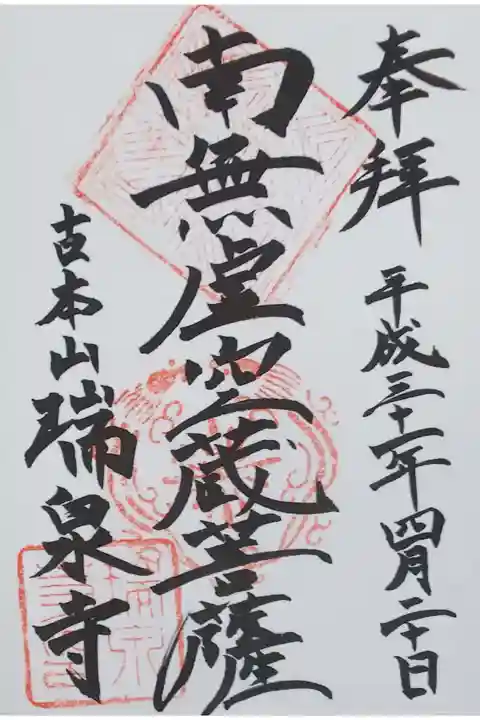 奉拝
平成三十一年四月二十日
南無虚空蔵菩薩
古本山
瑞泉寺